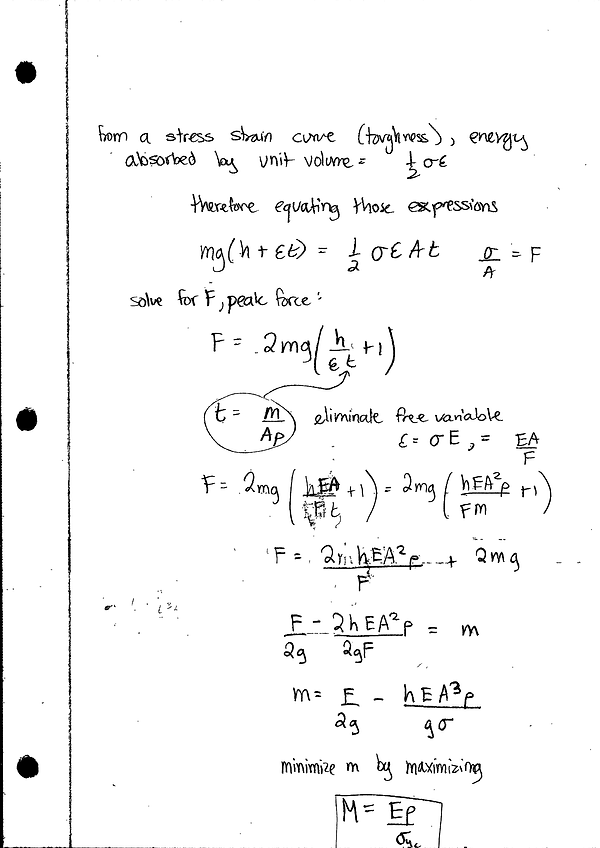 from a stress strain curve (toughness), energy
absorbed by unit volume = 1/2 σε
therefore equating those expressions
mg(h + εt) = 1/2 σεAt σ/A = F
solve for F, peak force:
F = 2mg(h/εt + 1)
t = m/Aρ eliminate free variable
ε = σE, = EA/F
F = 2mg(hEA/Ft + 1) = 2mg(hEA²ρ/Fm + 1)
F = 2mhEA²ρ/F + 2mg
F/2g - 2hEA²ρ/2gF = m
m = F/2g - hEA³ρ/gσ
minimize m by maximizing
M = Eρ/σyc